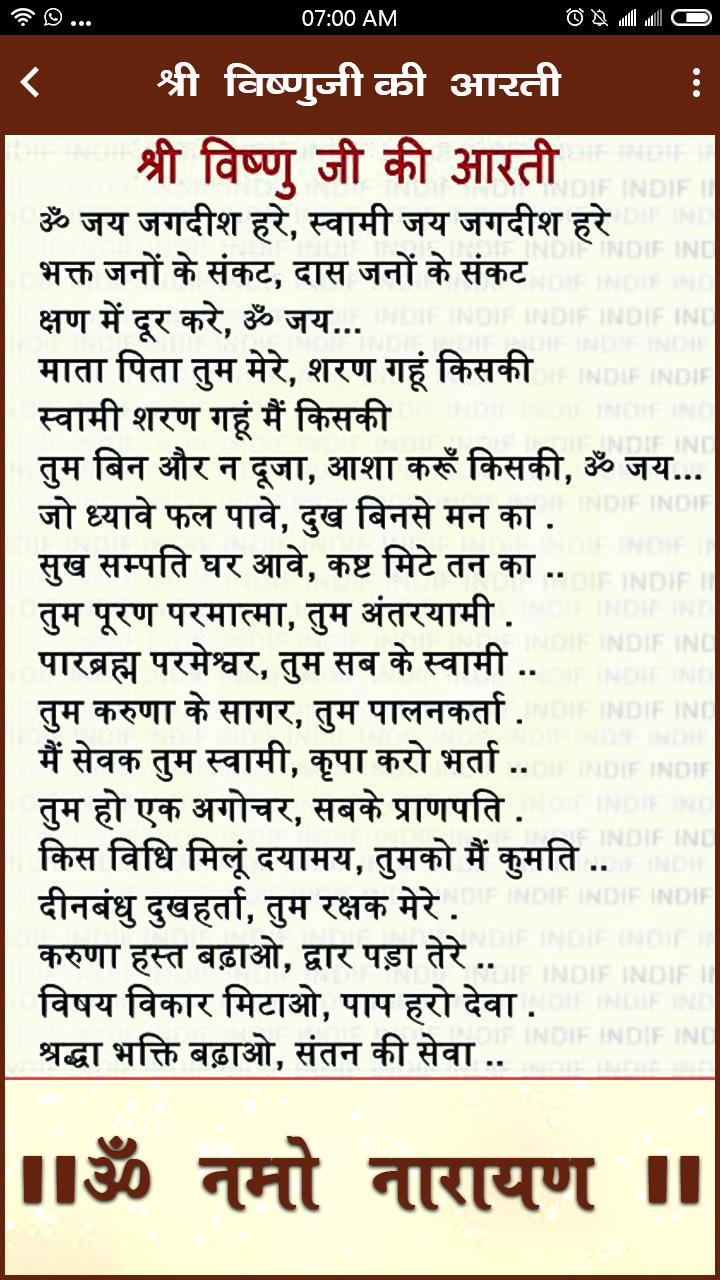 07:00 AM
श्री विष्णुजी की आरती
श्री विष्णु जी की आरती
ॐ जय जगदीश हरे, स्वामी जय जगदीश हरे
भक्त जनों के संकट, दास जनों के संकट
क्षण में दूर करे, ॐ जय...
माता पिता तुम मेरे, शरण गहूं किसकी
स्वामी शरण गहूं मैं किसकी
तुम बिन और न दूजा, आशा करूँ किसकी, ॐ जय...
जो ध्यावे फल पावे, दुख बिनसे मन का .
सुख सम्पति घर आवे, कष्ट मिटे तन का ..
तुम पूरण परमात्मा, तुम अंतरयामी .
पारब्रह्म परमेश्वर, तुम सब के स्वामी ..
तुम करुणा के सागर, तुम पालनकर्ता .
मैं सेवक तुम स्वामी, कृपा करो भर्ता ..
तुम हो एक अगोचर, सबके प्राणपति .
किस विधि मिलूं दयामय, तुमको मैं कुमति ..
दीनबंधु दुखहर्ता, तुम रक्षक मेरे .
करुणा हस्त बढ़ाओ, द्वार पड़ा तेरे ..
विषय विकार मिटाओ, पाप हरो देवा .
श्रद्धा भक्ति बढ़ाओ, संतन की सेवा ..
॥ॐ नमो नारायण ॥